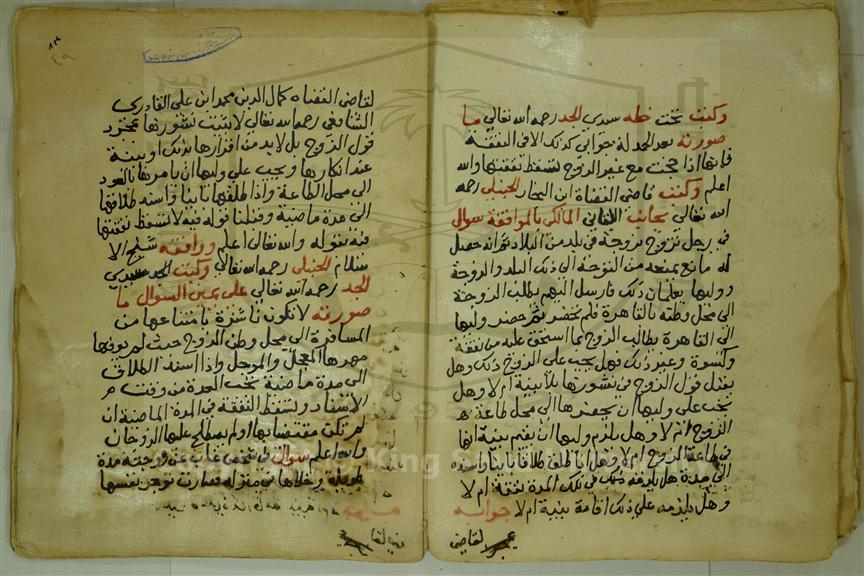 وكتبت تحت خطه سيدي الجد رحمه الله تعالى ما
صورته بعد الحمد لله جوابي كذلك الا في النفقة
فانها اذا حجت مع غير الزوج تسقط نفقتها والله
اعلم وكتب قاضي القضاة ابن النجار الحنبلي رحمه
الله تعالى بجانب المالكي بالموافقة سوال
في رجل تزوج بزوجة في بلد من البلاد ثم انه حصل
له مانع يمنعه من التوجه الى ذلك البلد والزوجة
ووليها يعلمان ذلك فارسل اليهم يطلب الزوجة
الى محل وطنه بالقاهرة فلم تحضر ثم حضر وليها
الى القاهرة يطالب الزوج بما استحق عليه من نفقة
وكسوة وغير ذلك فهل يجب على الزوج ذلك وهل
يقبل قول الزوج في نشوزها بلا بينة ام لا وهل
يجب على وليها ان يحضرها الى محل طاعة
الزوج ام لا وهل يلزم وليها ان يقيم بينة انها
في طاعة الزوج ام لا وهل اذا طلق طلاقا باينا واسنده
الى مدة هل يلزمه ذلك في تلك المدة نفقة ام لا
وهل يلزمه على ذلك اقامة بينة ام لا جوابه
لقاضي
لقاضي القضاه كمال الدين محمد ابن علي القادري
الشافعي رحمه الله تعالى لا يثبت نشوزها بمجرد
قول الزوج بل لا بد من اقرارها بذلك او بينة
عند انكارها ويجب على وليها ان يامرها بالعود
الى محل الطاعة واذا طلقها باينا واسند طلاقها
الى مدة ماضية وقبلنا قوله فيه لا تسقط نفقتها
فيه بقوله والله تعالى اعلم ووافقه شيخ الا
سلام الحنبلي رحمه الله تعالى وكتب سيدي
الجد رحمه الله تعالى على السوال ما
صورته لا تكون ناشزة بامتناعها من
المسافرة الى محل وطن الزوج حيث لم يوفها
مهرها المعجل والموجل واذا اسند الطلاق
الى مدة ماضية تجب العدة من وقت
الاسناد وتسقط النفقة في المدة الماضية ان
لم تكن مقتضابها او لم يصطلح عليها الزوجان
والله اعلم سوال في شخص غاب عن زوجته مدة
طويلة وخلاها في منزله فصارت توجر نفسها